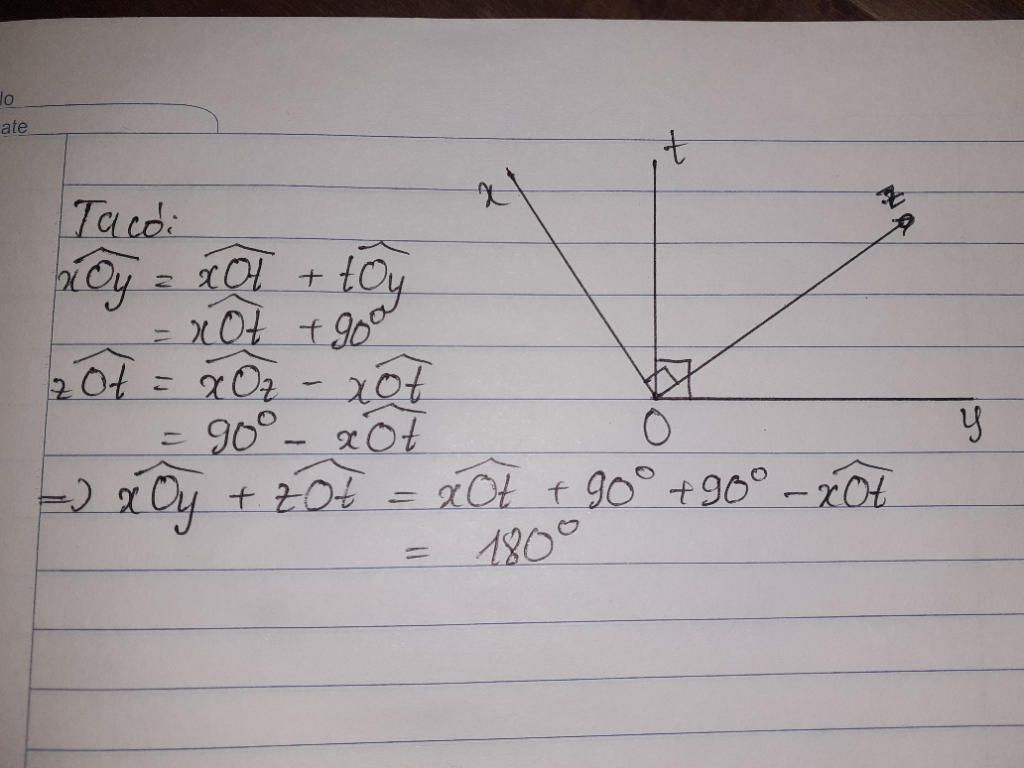 No
ate
Ta có:
x͡Oy = x͡Ot + t͡Oy
= x͡Ot + 90°
z͡Ot = x͡Oz - x͡Ot
= 90° - x͡Ot
=> x͡Oy + z͡Ot = x͡Ot + 90° + 90° - x͡Ot
= 180°
x
t
z
O
y